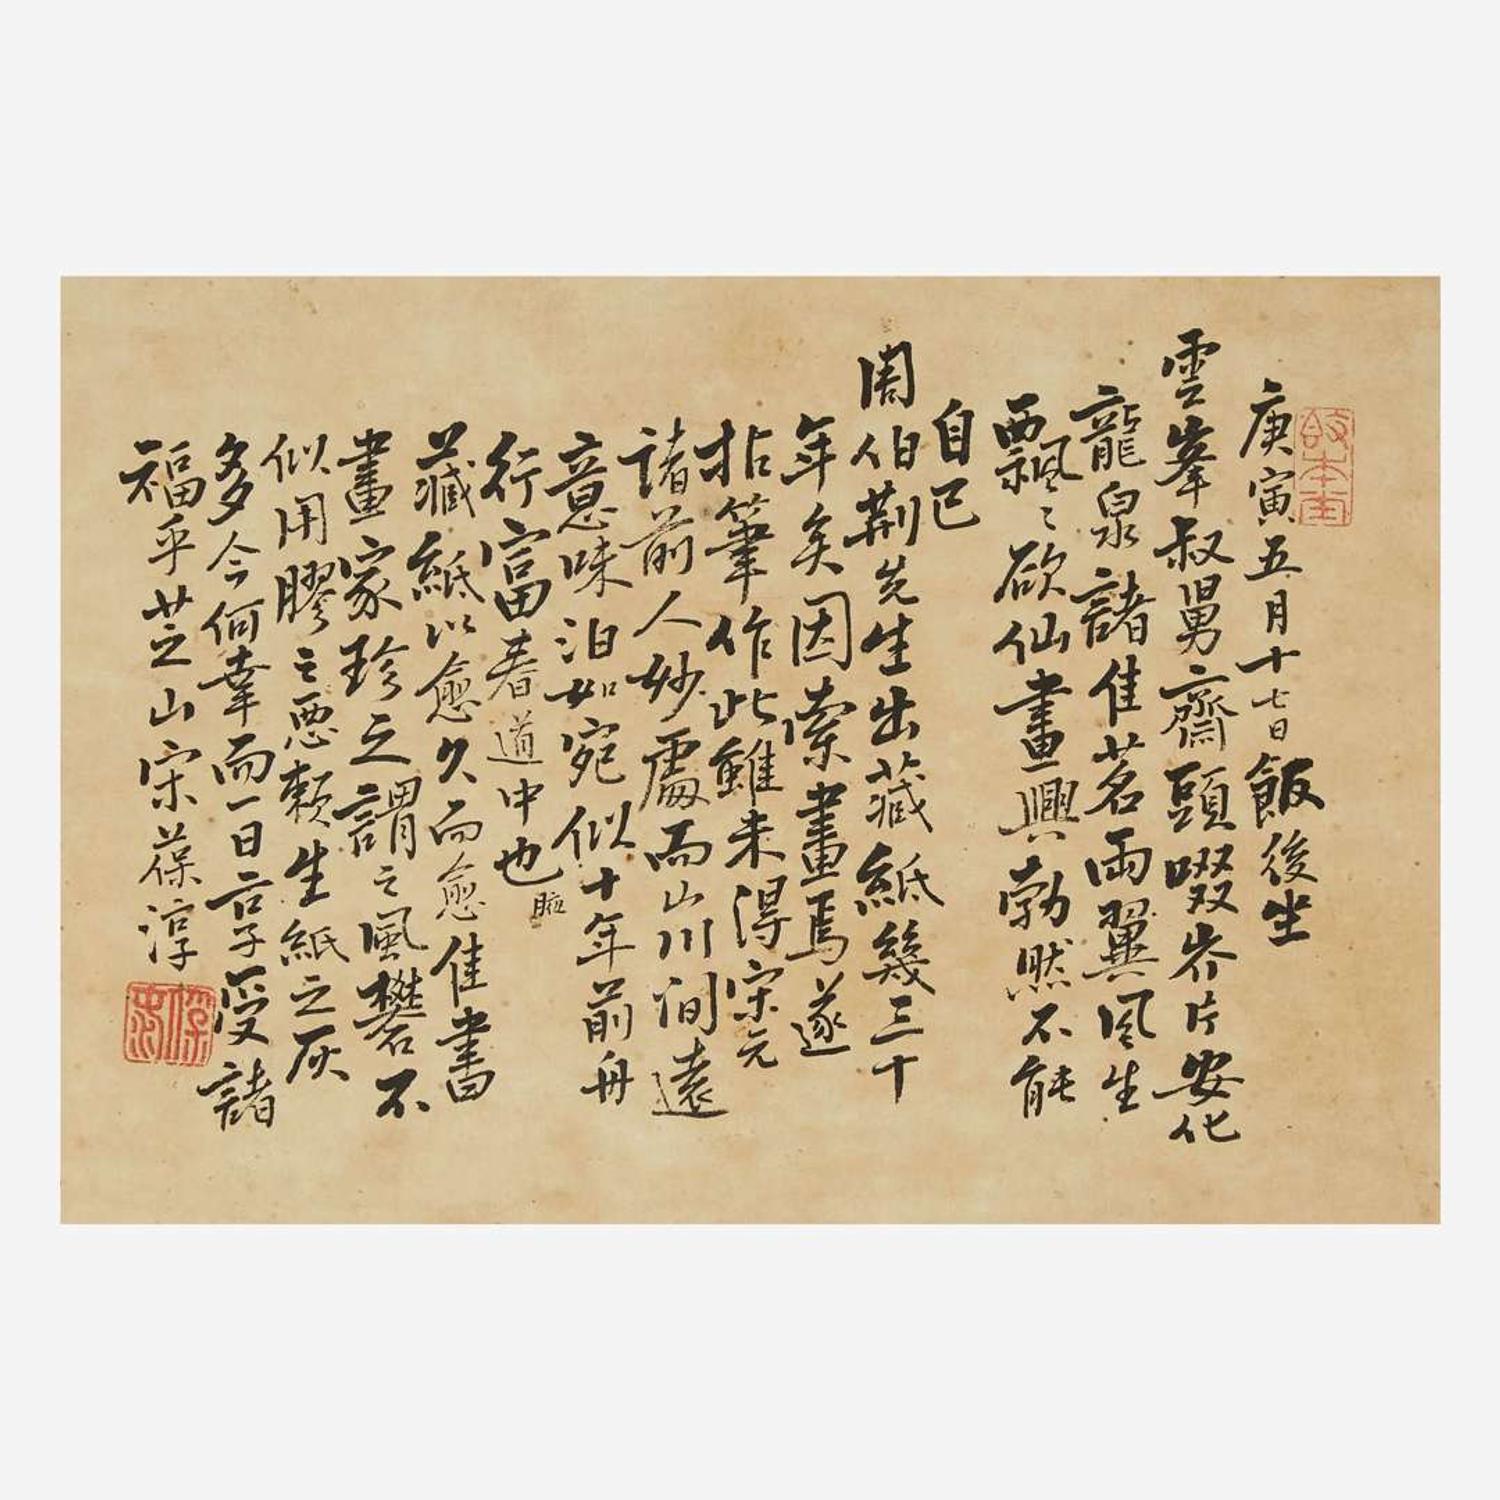 庚寅五月十七日飯後坐
雲峯叔舅齋頭啜岕片安化
龍泉諸佳茗兩翼風生
飄〻欲仙畫興勃然不能
自已
周伯荆先生出藏紙幾三十
年矣因索畫焉遂
拈筆作此雖未得宋元
諸前人妙處而山川洞遠
意味泊如宛似十年前舟
行富春道中也
藏紙以愈久而愈佳書
畫家珍之謂之風礬不
似用膠之惡賴生紙之灰
多今何幸而一日享受諸
福乎芝山宋葆淳